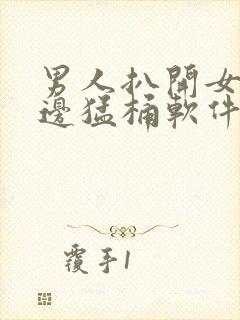 男人扒開女
邊猛桶軟件
覆手1